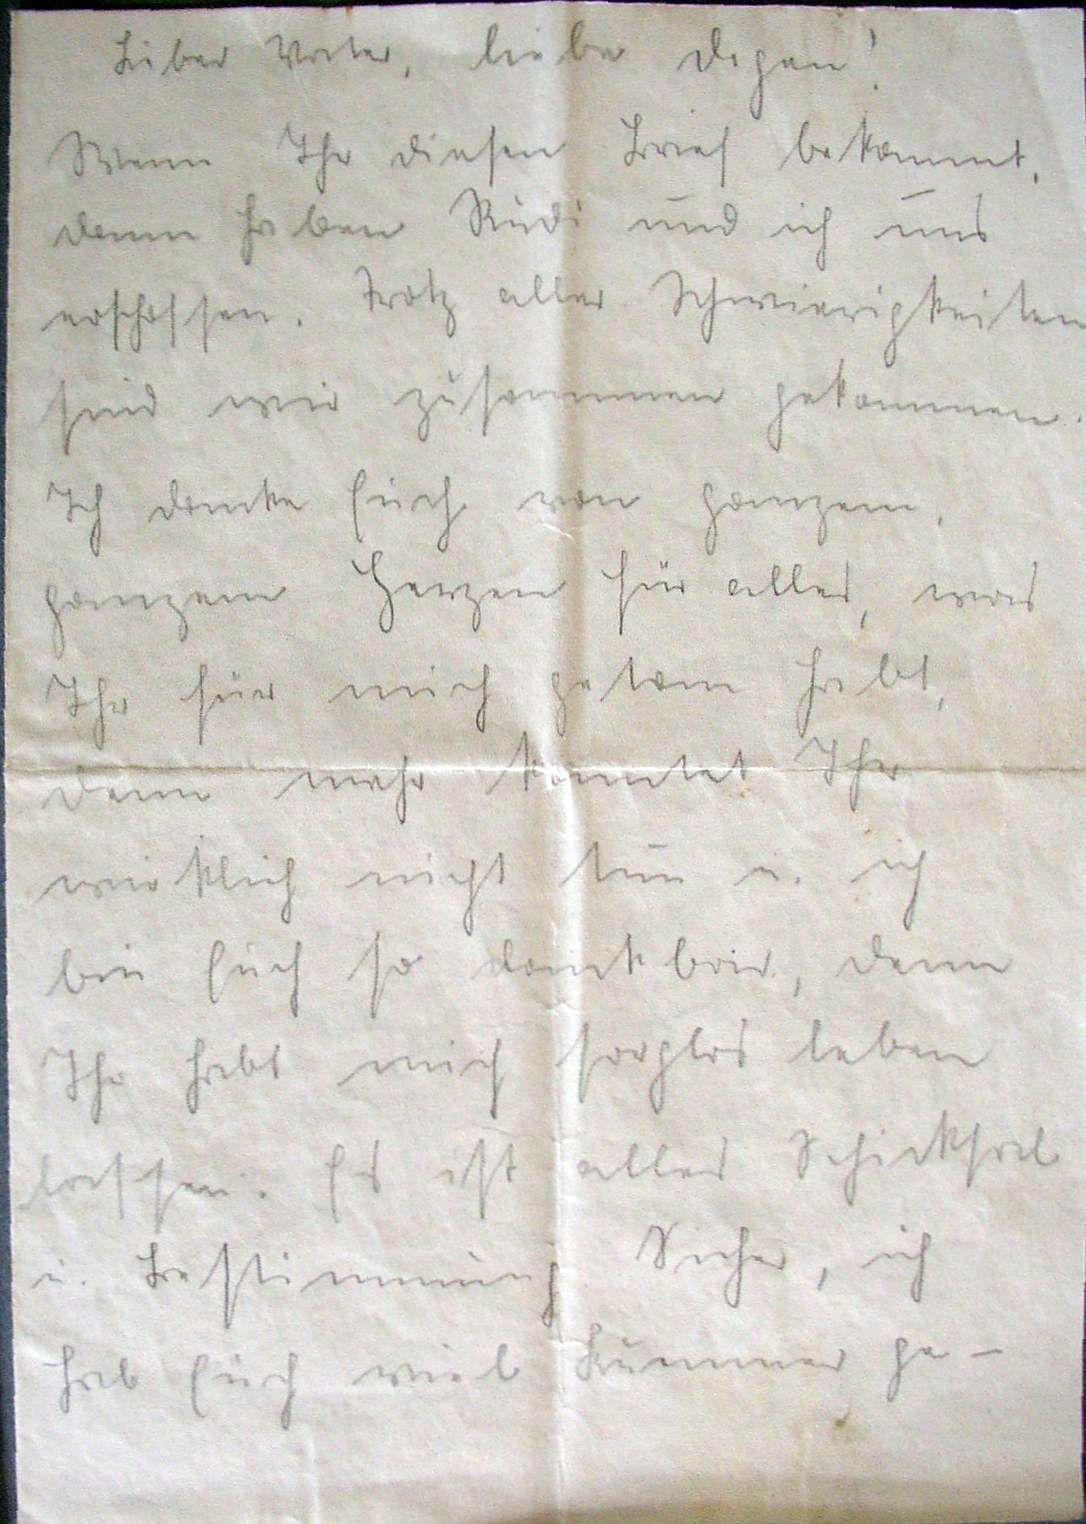 Lieber Vater, liebe Degen!
Wenn Ihr diesen Brief bekommt,
dann haben Rudi und ich uns
erschossen. Trotz aller Schwierigkeiten
sind wir zusammen gekommen.
Ich danke Euch von ganzem,
ganzem Herzen für alles, was
Ihr für mich getan habt,
denn mehr konntet Ihr
wirklich nicht tun u. ich
bin Euch so dankbar, denn
Ihr habt mich sorglos leben
lassen. Es ist alles Schicksal
u. Bestimmung. Sicher, ich
hab Euch viel Kummer ge-